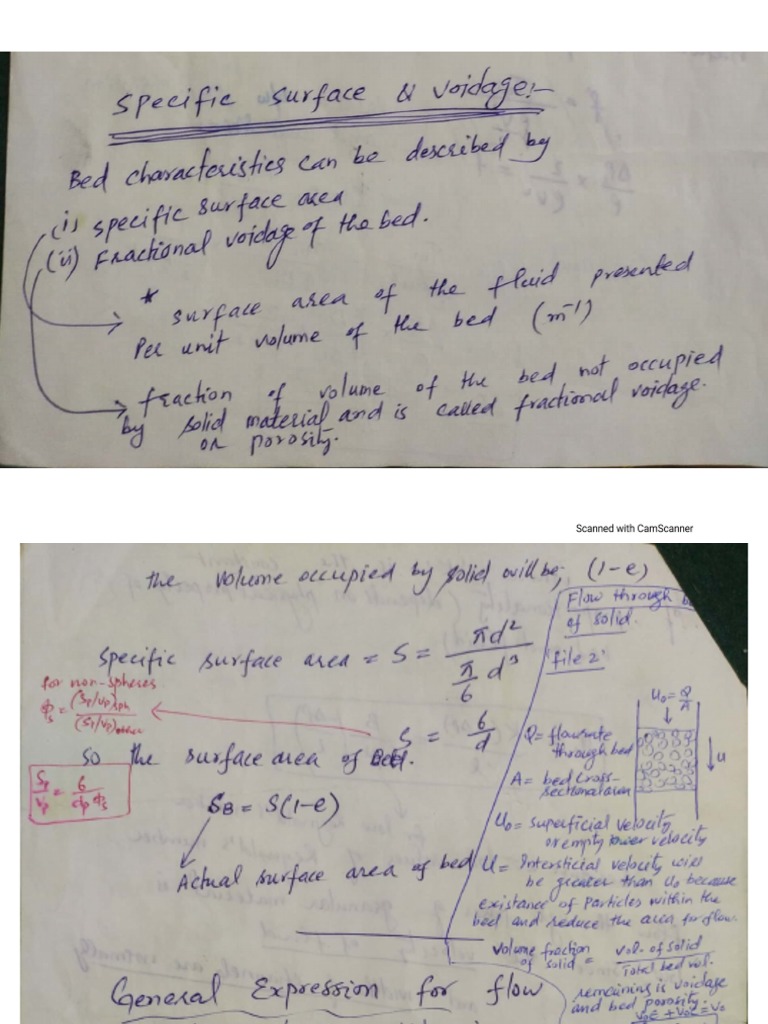 Specific surface & voidage:-
Bed characteristics can be described by
(i) specific surface area
(ii) Fractional voidage of the bed.
* surface area of the fluid presented
Per unit volume of the bed (m⁻¹)
fraction of volume of the bed not occupied
by solid material and is called fractional voidage.
or porosity.
Scanned with CamScanner
the volume occupied by solid will be; (1-e)
Specific surface area = S = πd² / (π/6 d³)
for non-spheres
Φs = (Sp/Vp)sph / (Sp/Vp)
S = 6/d
So the surface area of Bed.
Sp/Vp = 6/dpΦs
SB = S(1-e)
Actual surface area of bed
General Expression for flow
Flow through
of solid.
'file 2'
U₀ = Q/A
U
Q = flowrate
through bed
A = bed cross-
sectional area
U₀ = superficial velocity
or empty tower velocity
U = Intersticial velocity will
be greater than U₀ because
existance of particles within the
bed and reduce the area for flow.
volume fraction of solid = vol. of solid / Total bed vol.
remaining is voidage
and bed porosity.